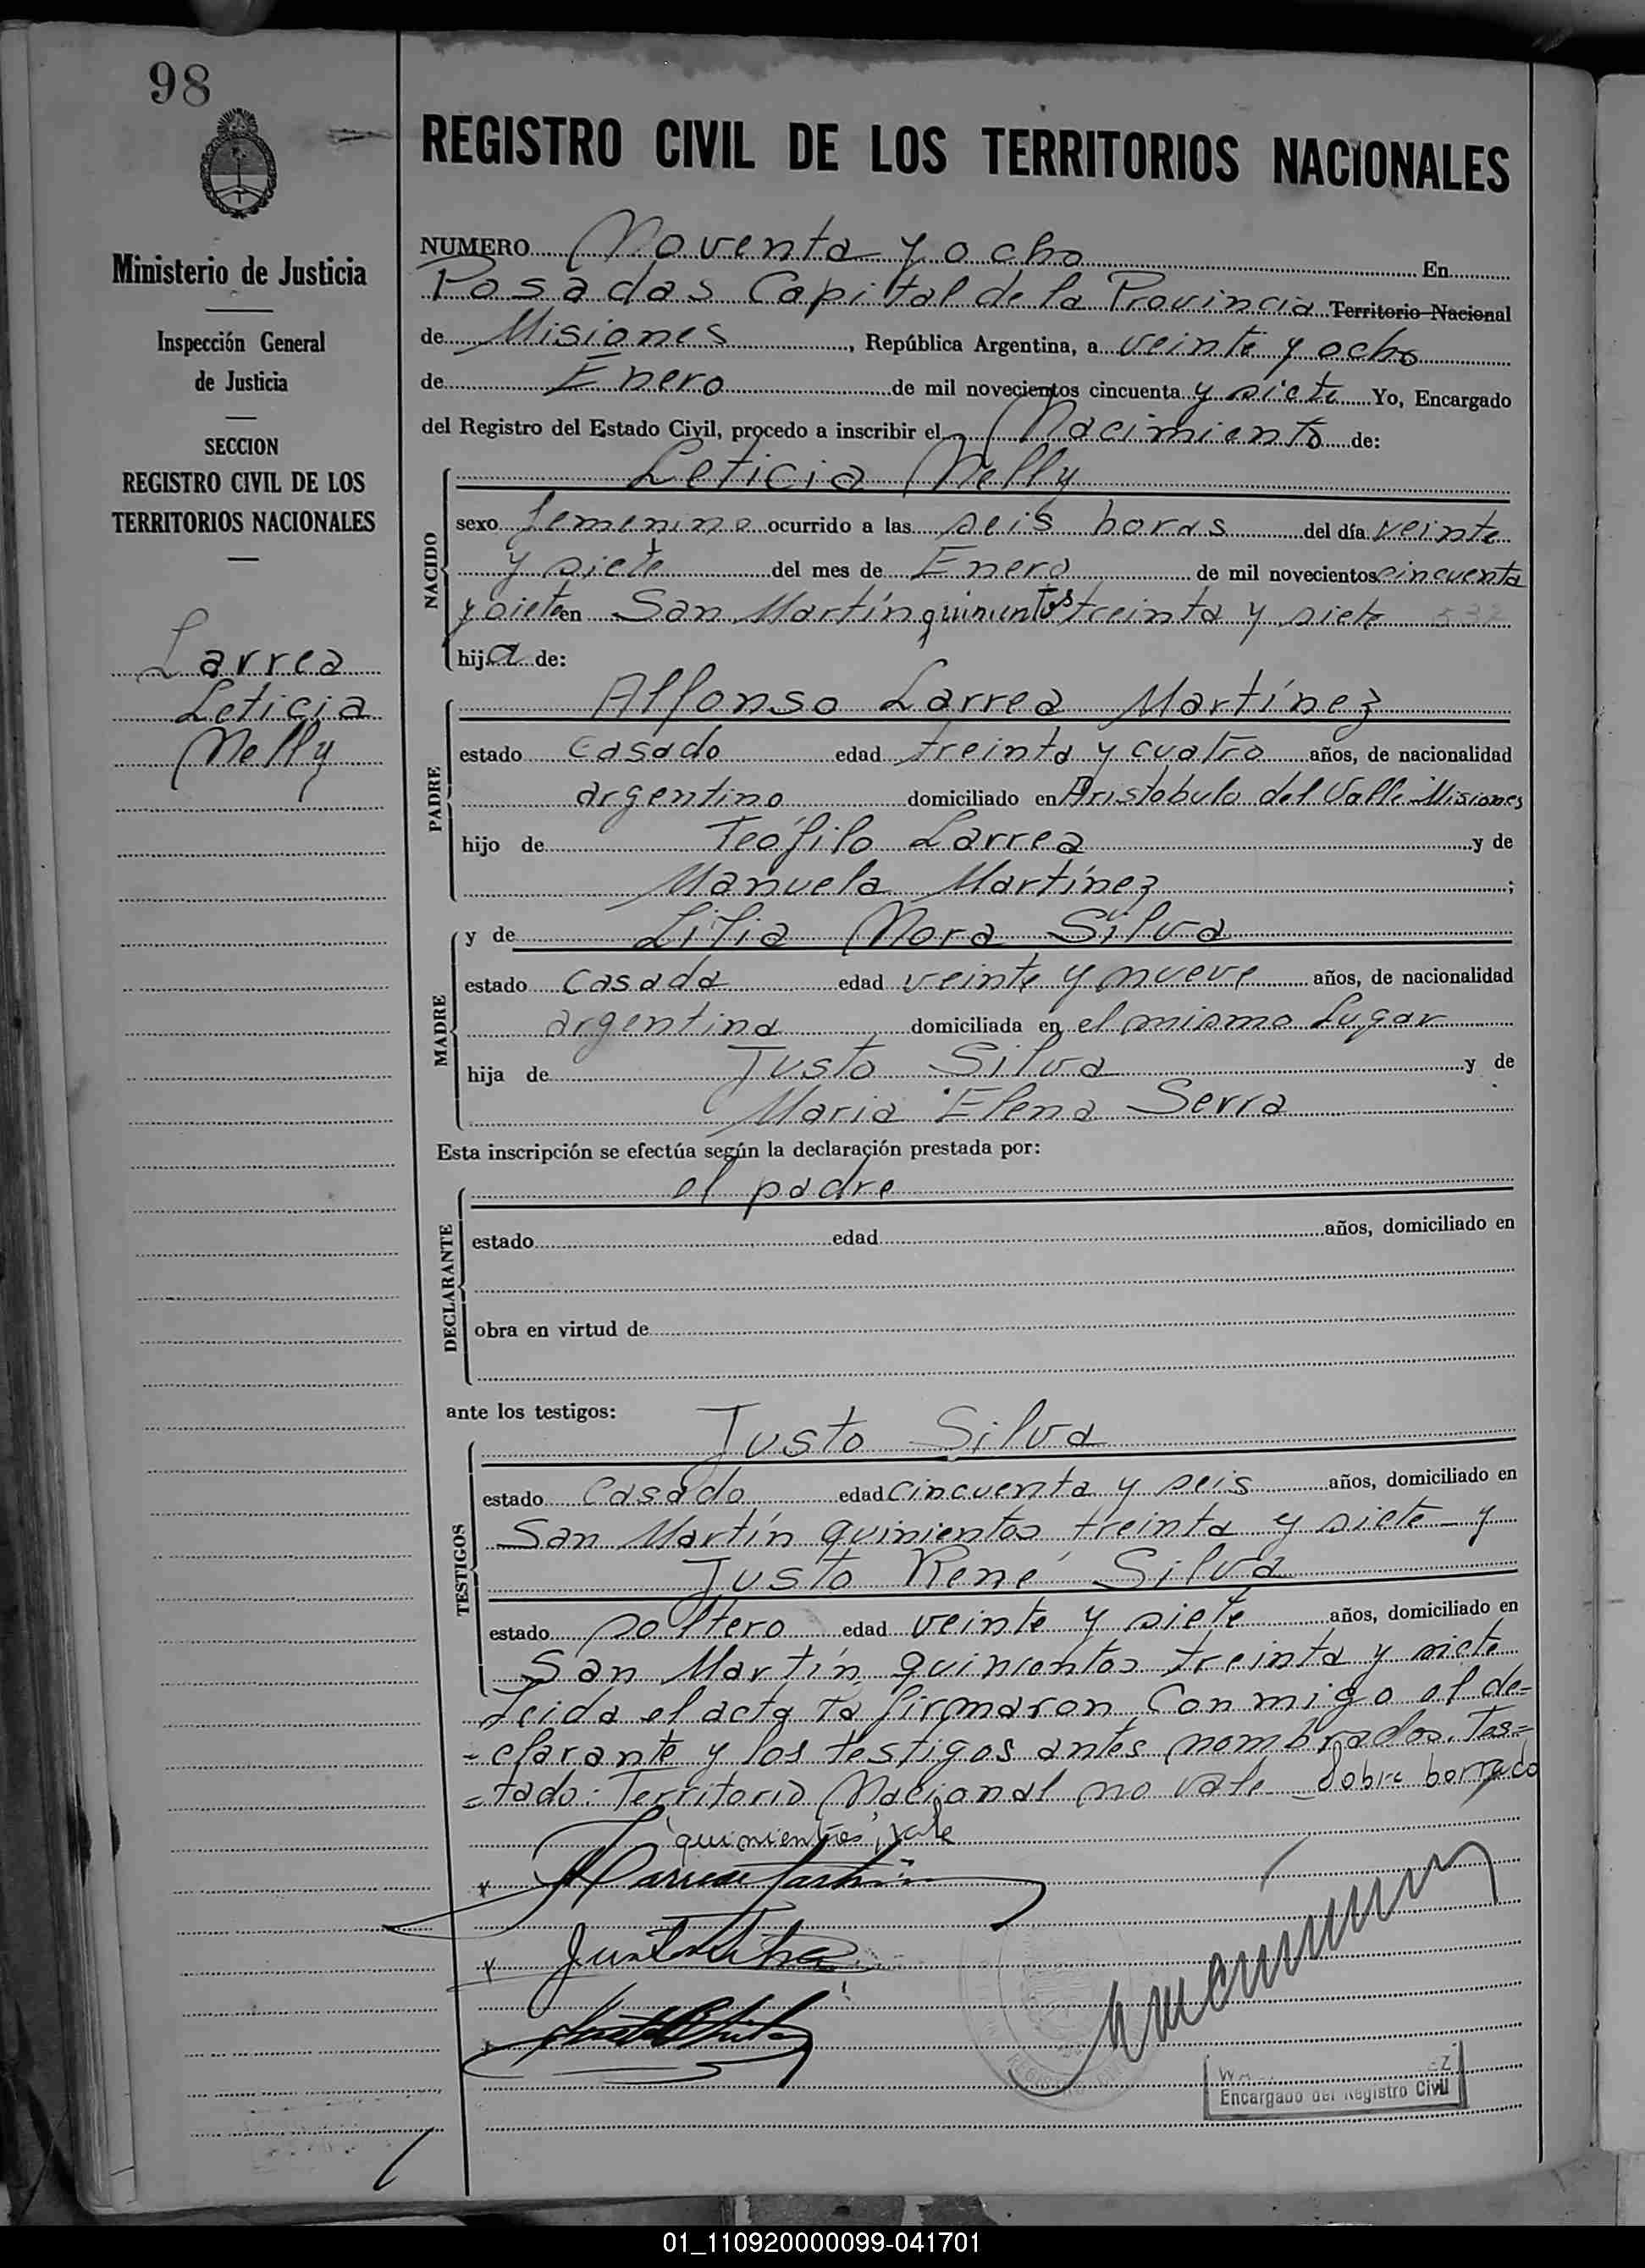 98
Ministerio de Justicia
Inspección General
de Justicia
SECCION
REGISTRO CIVIL DE LOS
TERRITORIOS NACIONALES
Larrea
Leticia
Nelly
REGISTRO CIVIL DE LOS TERRITORIOS NACIONALES
NUMERO Noventa y ocho En
Posadas Capital de la Provincia Territorio Nacional
de Misiones, República Argentina, a veinte y ocho
de Enero de mil novecientos cincuenta y siete Yo, Encargado
del Registro del Estado Civil, procedo a inscribir el Nacimiento de:
NACIDO
Leticia Nelly
sexo femenino ocurrido a las seis horas del día veinte
y siete del mes de Enero de mil novecientos cincuenta
y siete en San Martín quinientos treinta y siete 537
hija de:
PADRE
Alfonso Larrea Martínez
estado casado edad treinta y cuatro años, de nacionalidad
argentino domiciliado en Aristobulo del Valle Misiones
hijo de Teófilo Larrea y de
Manuela Martínez;
MADRE
y de Lilia Nora Silva
estado casada edad veinte y nueve años, de nacionalidad
argentina domiciliada en el mismo lugar
hija de Justo Silva y de
Maria Elena Serra
Esta inscripción se efectúa según la declaración prestada por:
DECLARANTE
el padre
estado edad años, domiciliado en
obra en virtud de
ante los testigos:
TESTIGOS
Justo Silva
estado casado edad cincuenta y seis años, domiciliado en
San Martín quinientos treinta y siete - y
Justo René Silva
estado soltero edad veinte y siete años, domiciliado en
San Martín quinientos treinta y siete
Leida el acta la firmaron conmigo el de=
=clarante y los testigos antes nombrados. Tes=
=tado: Territorio Nacional no vale - Sobre borrado
"quinientos", vale
Encargado del Registro Civil
01_110920000099-041701